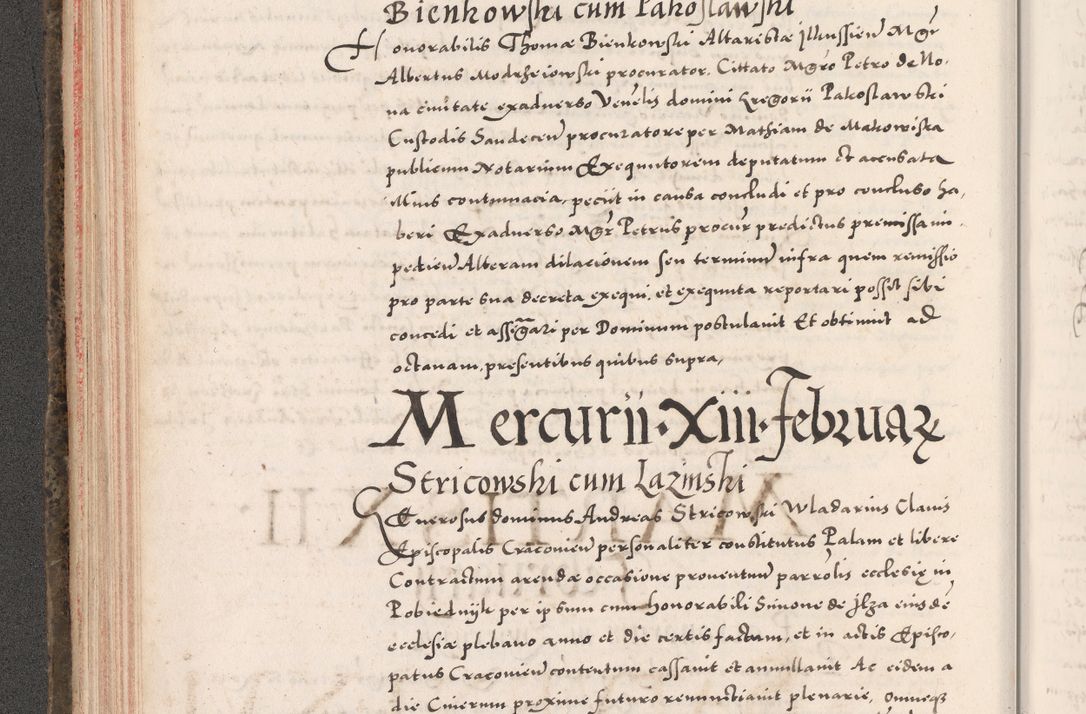 Bienkowski cum Pakoslawski
Honorabilis Thomæ Bienkowski Altaristæ Jlkussien Mgr
Albertus Modrzeiowski procurator. Cittato Mgro Petro de No-
ua ciuitate exaduerso Venelis domini Gregorii Pakoslawski
Custodis Sandecen procuratore per Mathiam de Makowiska
publicum Notarium Exequutorem deputatum et accusata
illius contumacia, peciit in causa concludi et pro concluso ha-
beri Exaduerso Mgr Petrus procur predictus premissa im-
pedien Alteram dilacionem seu terminum infra quem remissio
pro parte sua decreta exequi, et exequuta reportari posset sibi
concedi et assignari per Dominum postulauit Et obtinuit ad
octauam, presentibus quibus supra,
Mercurii · XIII · Februar
Stricowski cum Lazinski
Generosus dominus Andreas Stricowski Wladarius Clauis
Episcopalis Cracouien personaliter constitutus Palam et libere
Contractum arendæ occasione prouentuum parrolis ecclesiæ in
Pobiednyk per ipsum cum honorabili Simone de Jlza eiusde
ecclesiæ plebano anno et die certis factum, et in actis Episco-
patus Cracouien contentum cassauit et annullauit Ac eidem a
die Cinerum proxime futuro renunctiauit plenarie, omneq